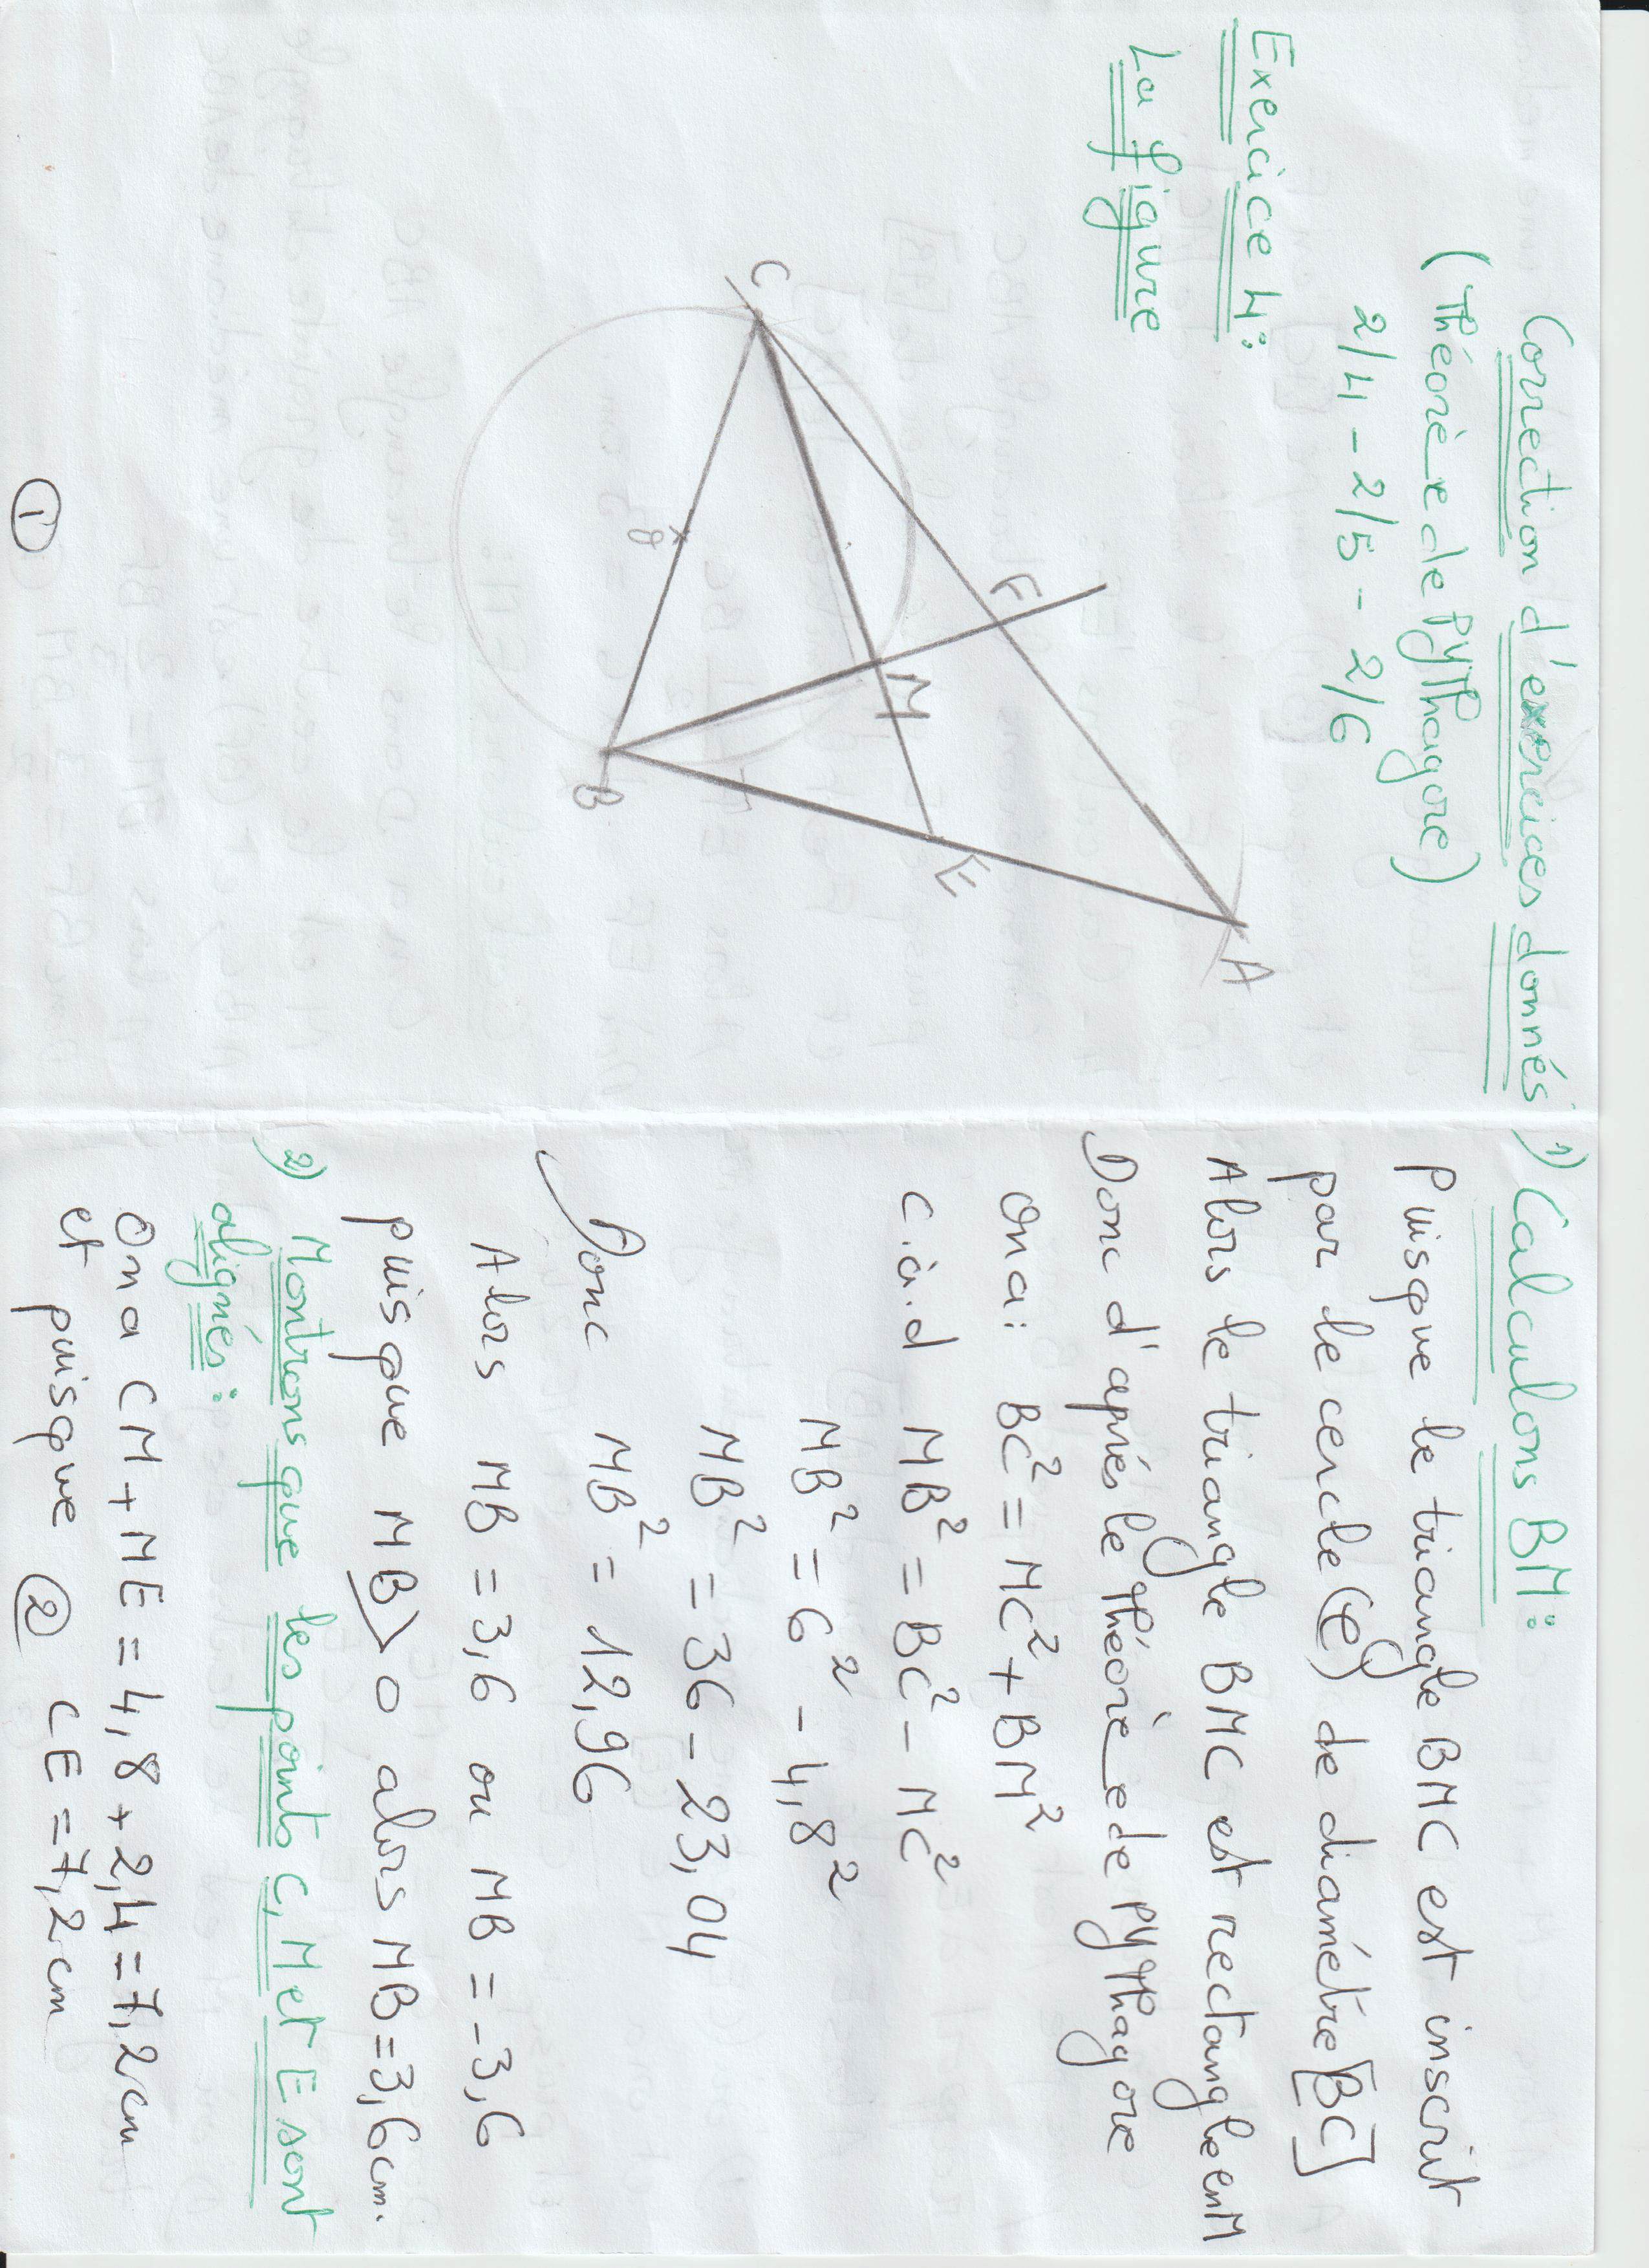 Correction d'exercices donnés
(Théorème de PyThagore)
2/4 - 2/5 - 2/6
Exercice 4:
La figure
A
F
E
M
C
O
B
①
1) Calculons BM:
Puisque le triangle BMC est inscrit
par le cercle (C) de diamétre [BC]
Alors le triangle BMC est rectangle en M
Donc d'aprés le Théorème de PyThagore
On a: BC² = MC² + BM²
c.à.d MB² = BC² - MC²
MB² = 6² - 4,8²
MB² = 36 - 23,04
Donc MB² = 12,96
Alors MB = 3,6 ou MB = -3,6
puisque MB > 0 alors MB = 3,6 cm.
2) Montrons que les points C, M et E sont
alignés:
On a CM + ME = 4,8 + 2,4 = 7,2 cm
et puisque CE = 7,2 cm
②